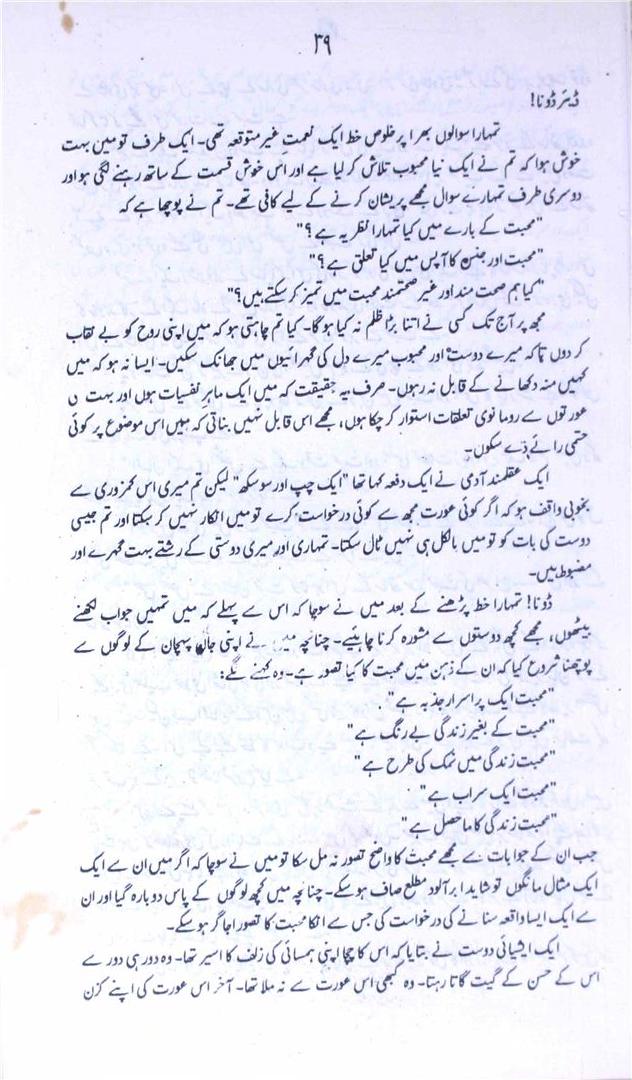 ۳۹
ڈیئر ڈونا!
تمہارا سوالوں بھرا پرخلوص خط ایک نعمتِ غیر متوقعہ تھی۔ ایک طرف تو میں بہت
خوش ہوا کہ تم نے ایک نیا محبوب تلاش کر لیا ہے اور اس خوش قسمت کے ساتھ رہنے لگی ہو اور
دوسری طرف تمہارے سوال مجھے پریشان کرنے کے لیے کافی تھے۔ تم نے پوچھا ہے کہ
"محبت کے بارے میں کیا تمہارا نظریہ ہے؟"
"محبت اور جنس کا آپس میں کیا تعلق ہے؟"
"کیا ہم صحت مند اور غیر صحتمند محبت میں تمیز کر سکتے ہیں؟"
مجھ پر آج تک کسی نے اتنا بڑا ظلم نہ کیا ہو گا۔ کیا تم چاہتی ہو کہ میں اپنی روح کو بے نقاب
کر دوں تاکہ میرے دوست اور محبوب میرے دل کی گہرائیوں میں جھانک سکیں۔ ایسا نہ ہو کہ میں
کہیں منہ دکھانے کے قابل نہ رہوں۔ صرف یہ حقیقت کہ میں ایک ماہرِ نفسیات ہوں اور بہت ں
عورتوں ے رومانوی تعلقات استوار کر چکا ہوں، مجھے اس قابل نہیں بناتی کہ میں اس موضوع پر کوئی
حتمی رائے دے سکوں۔
ایک عقلمند آدمی نے ایک دفعہ کہا تھا "ایک چپ اور سو سکھ" لیکن تم میری اس کمزوری ے
بخوبی واقف ہو کہ اگر کوئی عورت مجھ ے کوئی درخواست کرے تو میں انکار نہیں کر سکتا اور تم جیسی
دوست کی بات کو تو میں بالکل ہی نہیں ٹال سکتا۔ تمہاری اور میری دوستی کے رشتے بہت گہرے اور
مضبوط ہیں۔
ڈونا! تمہارا خط پڑھنے کے بعد میں نے سوچا کہ اس ے پہلے کہ میں تمہیں جواب لکھنے
بیٹھوں، مجھے کچھ دوستوں ے مشورہ کرنا چاہئیے۔ چنانچہ میں نے اپنی جان پہچان کے لوگوں ے
پوچھنا شروع کیا کہ ان کے ذہن میں محبت کا کیا تصور ہے۔ وہ کہنے لگے:
"محبت ایک پراسرار جذبہ ہے"
"محبت کے بغیر زندگی بے رنگ ہے"
"محبت زندگی میں نمک کی طرح ہے"
"محبت ایک سراب ہے"
"محبت زندگی کا ماحصل ہے"
جب ان کے جوابات ے مجھے محبت کا واضح تصور نہ مل سکا تو میں نے سوچا کہ اگر میں ان ے ایک
ایک مثال مانگوں تو شاید ابر آلود مطلع صاف ہو سکے۔ چنانچہ میں کچھ لوگوں کے پاس دوبارہ گیا اور ان
ے ایک ایسا واقعہ سنانے کی درخواست کی جس ے انکا محبت کا تصور اجاگر ہو سکے۔
ایک ایشیائی دوست نے بتایا کہ اس کا چچا اپنی ہمسائی کی زلف کا اسیر تھا۔ وہ دور ہی دور ے
اس کے حسن کے گیت گاتا رہتا۔ وہ کبھی اس عورت ے نہ ملا تھا۔ آخر اس عورت کی اپنے کزن